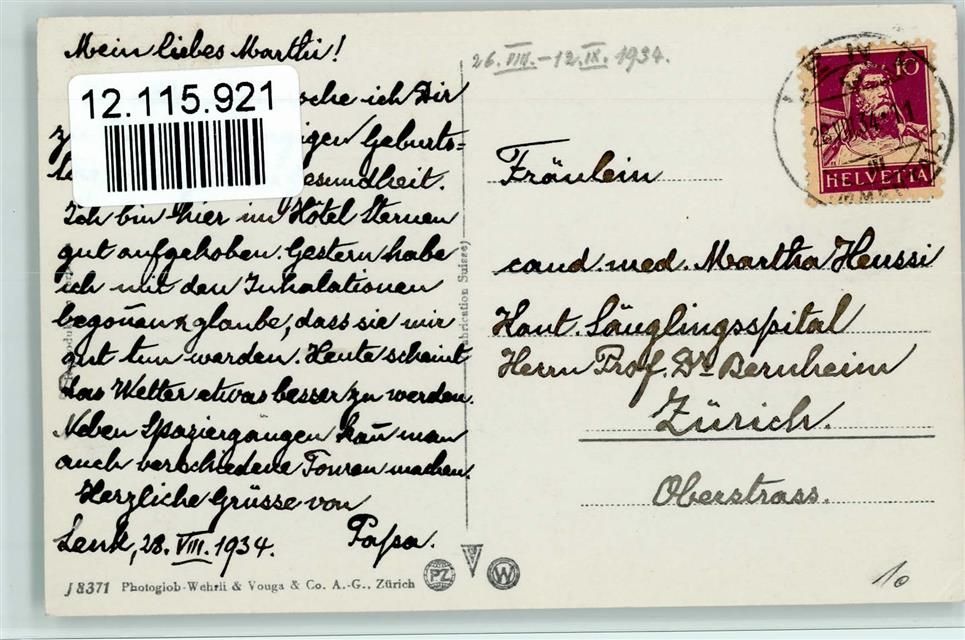 Mein liebes Marthi!
26.VIII.–12.IX.1934.
12.115.921
sche ich Dir
igen Geburts-
esundheit.
Ich bin hier im Hotel Sternen
gut aufgehoben. Gestern habe
ich mit den Inhalationen
begonnen & glaube, dass sie mir
gut tun werden. Heute scheint
das Wetter etwas besser zu werden.
Neben Spaziergängen kann man
auch verschiedene Touren machen.
Herzliche Grüsse von
Lenk, 28. VIII. 1934. Papa.
J 8371 Photoglob-Wehrli & Vouga & Co. A.-G., Zürich
PZ
W
Fabrication Suisse)
10
HELVETIA
Fräulein
cand. med. Martha Heussi
Kant. Säuglingsspital
Herrn Prof. Dr Bernheim
Zürich.
Oberstrass.
10